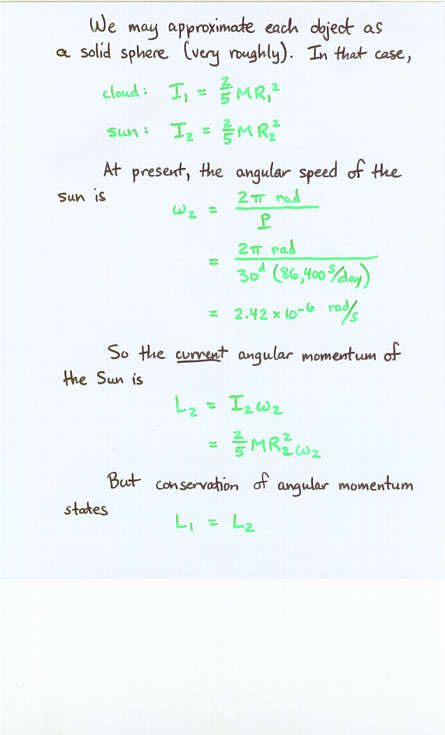 We may approximate each object as
a solid sphere (very roughly). In that case,
cloud: I₁ = 2/5 MR₁²
sun: I₂ = 2/5 MR₂²
At present, the angular speed of the
sun is
ω₂ = 2π rad / P
= 2π rad / 30ᵈ (86,400 s/day)
= 2.42 × 10⁻⁶ rad/s
So the current angular momentum of
the Sun is
L₂ = I₂ω₂
= 2/5 MR₂²ω₂
But conservation of angular momentum
states
L₁ = L₂